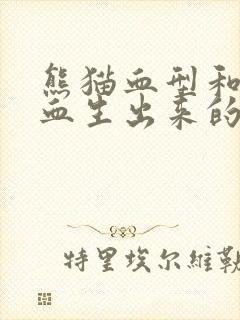 熊猫血型和
血生出来的
特里埃尔維勒